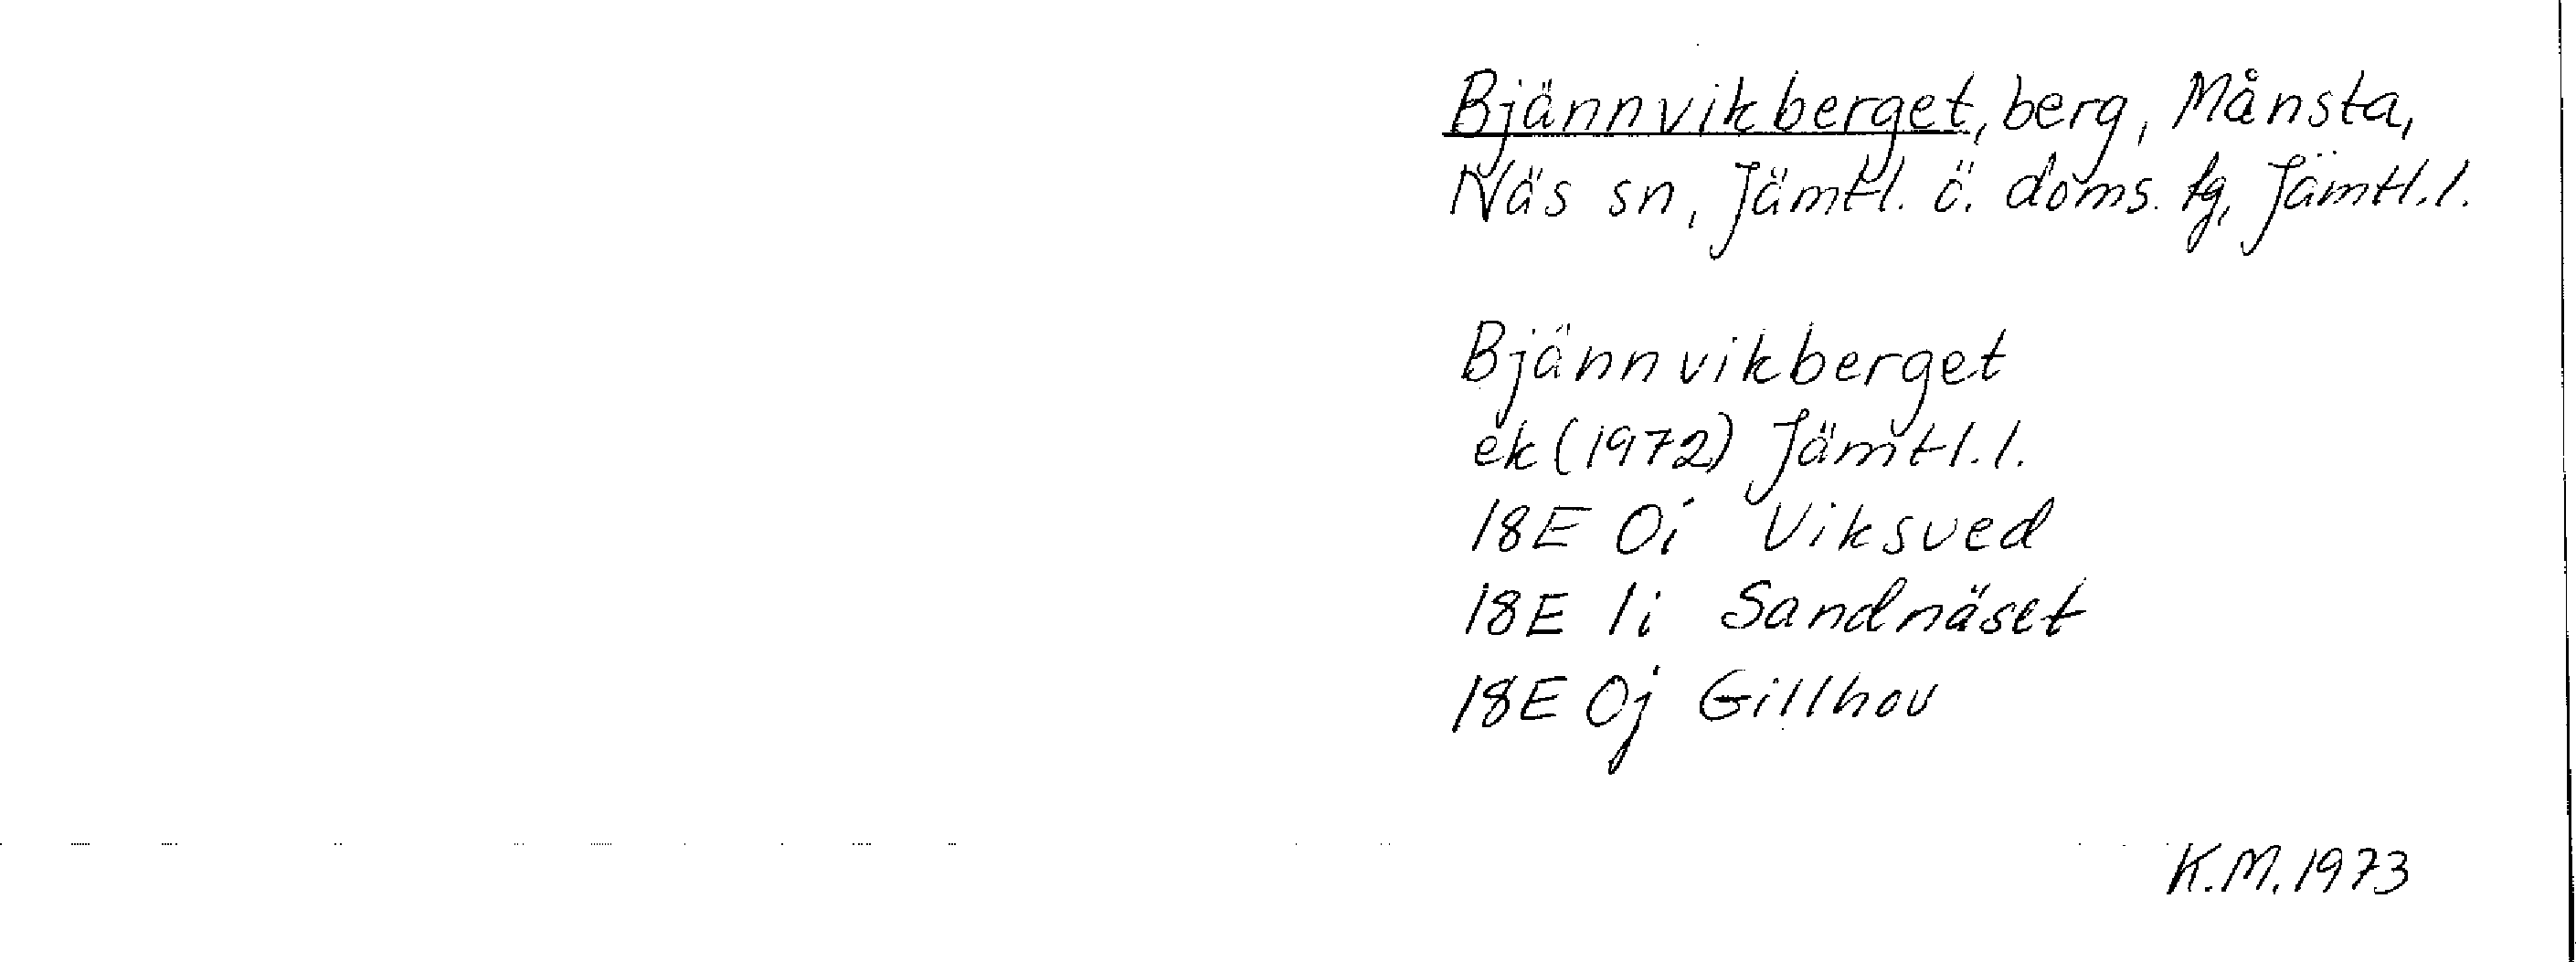 Bjännvikberget, berg, Månsta,
Näs sn, Jämtl. ö. doms. tg, Jämtl.l.
Bjännvikberget
ek (1972) Jämtl.l.
18E 0i Viksved
18E 1i Sandnäset
18E 0j Gillhov
K.M. 1973